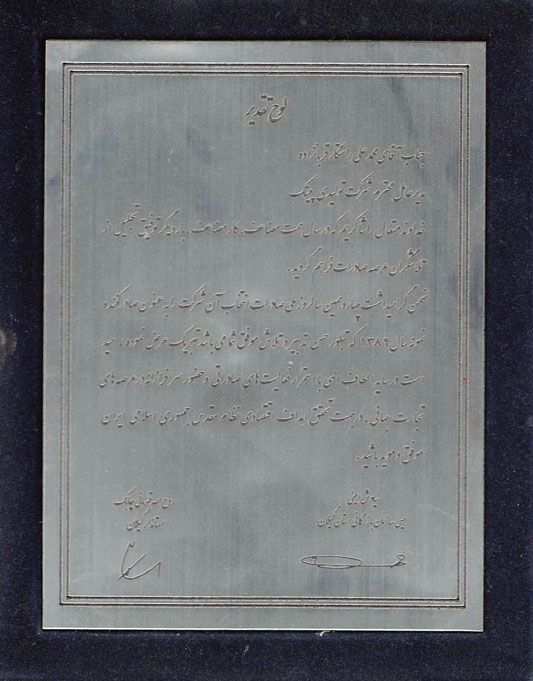 لوح تقدیر
جناب آقای محمد علی رستگار قربانزاده
مدیرعامل محترم شرکت تولیدی چینک
خداوند متعال را شاکریم که در سال همت مضاعف، کار مضاعف بار دیگر توفیق تجلیل از
تلاشگران عرصه صادرات فراهم گردید.
ضمن گرامیداشت چهاردهمین سالروز ملی صادرات انتخاب آن شرکت را به عنوان صادرکننده
نمونه سال ۱۳۸۹ که تبلور حسن تدبیر و تلاش موفق شما می باشد تبریک عرض نموده، امید
است در سایه الطاف الهی با استمرار فعالیت های صادراتی و حضور سرافرازانه در عرصه های
تجارت جهانی، در جهت تحقق اهداف اقتصادی نظام مقدس جمهوری اسلامی ایران
موفق و موید باشید.
رییس سازمان بازرگانی استان گیلان
روح اله قهرمانی چابک
استاندار گیلان